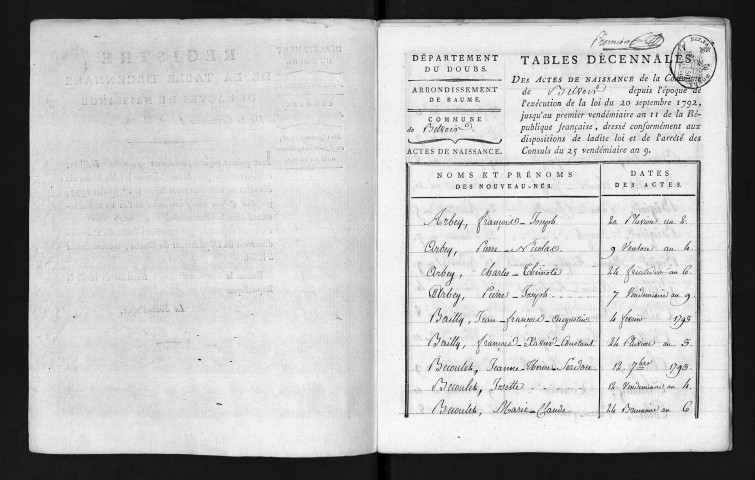 Premier
DÉPARTEMENT
DU DOUBS.
ARRONDISSEMENT
DE BAUME.
COMMUNE
de Belvoir
ACTES DE NAISSANCE.
TABLES DÉCENNALES
DES ACTES DE NAISSANCE de la Commune
de Belvoir depuis l'époque de
l'exécution de la loi du 20 septembre 1792,
jusqu'au premier vendémiaire an 11 de la Ré-
publique française, dressé conformément aux
dispositions de ladite loi et de l'arrêté des
Consuls du 25 vendémiaire an 9.
NOMS ET PRÉNOMS
DES NOUVEAU-NÉS.
DATES
DES ACTES.
Arbey, françois-Joseph 20 Pluviose an 2.
Arbey, Pierre-Nicolas 9 Ventose an 4.
Arbey, Charles-Thimoté 24 fructidor an 6.
Arbey, Pierre-Joseph 7 Vendemiaire an 9.
Bailly, Jean-françois-Augustin 4 fevrier 1793
Bailly, françois-Xavier-Constant 24 Pluviose an 5.
Beroulet, Jeanne 12. 7bre 1793.
Beroulet, Josette 12 Vendemiaire an 4.
Beroulet, Marie-Claude 24 Brumaire an 6